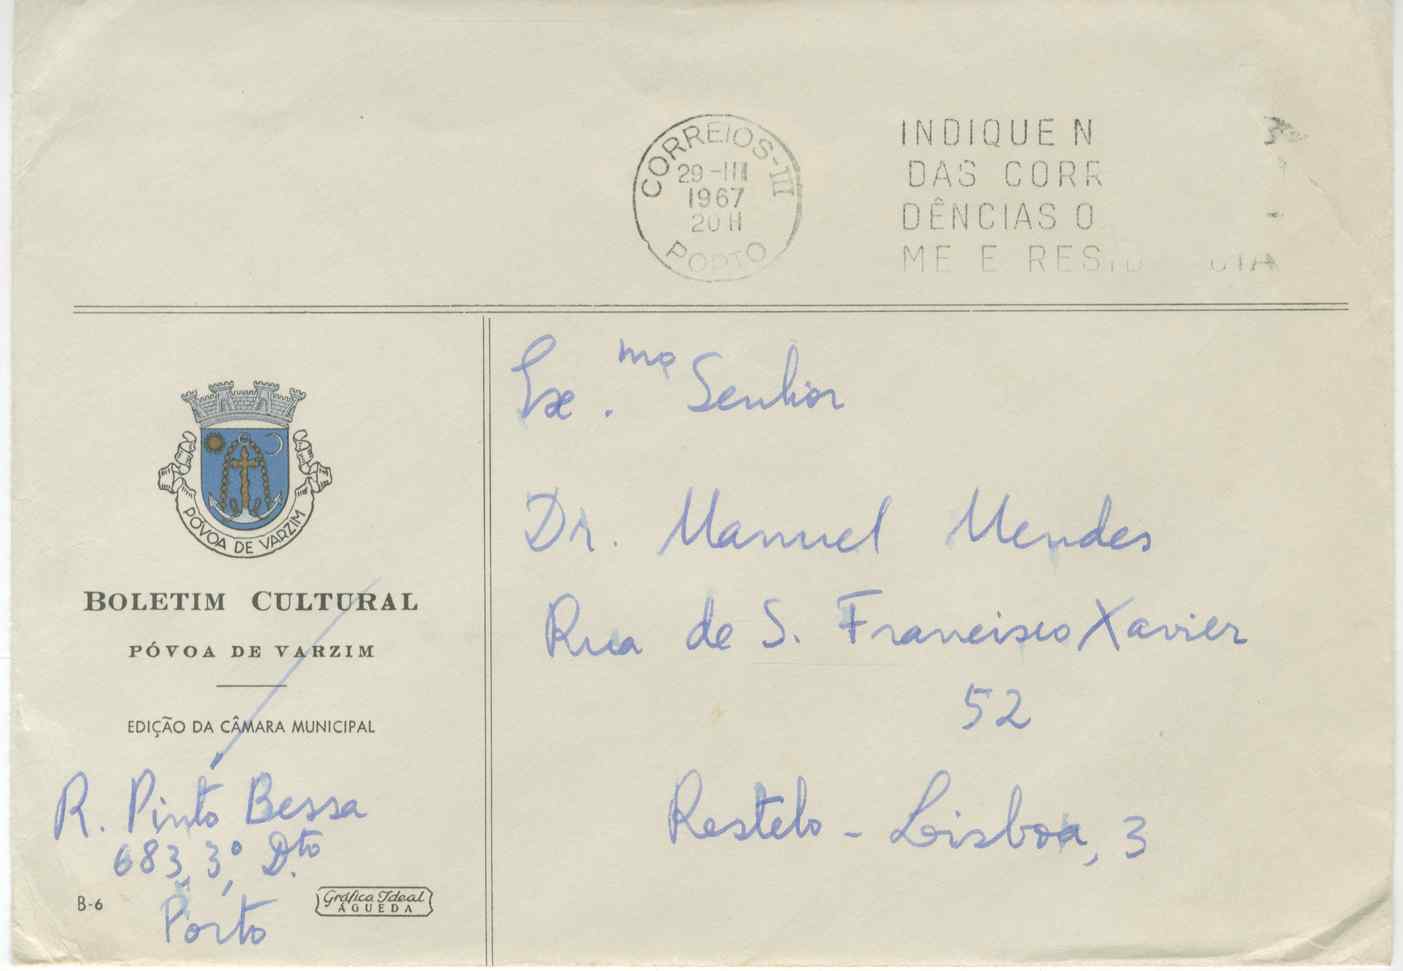 CORREIOS-III
29-III
1967
20 H
PORTO
INDIQUE N
DAS CORR
DÊNCIAS O
ME E RES
PÓVOA DE VARZIM
BOLETIM CULTURAL
PÓVOA DE VARZIM
EDIÇÃO DA CÂMARA MUNICIPAL
R. Pinto Bessa
683, 3º, Dto.
Porto
B-6
Gráfica Ideal
ÁGUEDA
Exmo. Senhor
Dr. Manuel Mendes
Rua de S. Francisco Xavier
52
Restelo - Lisboa, 3